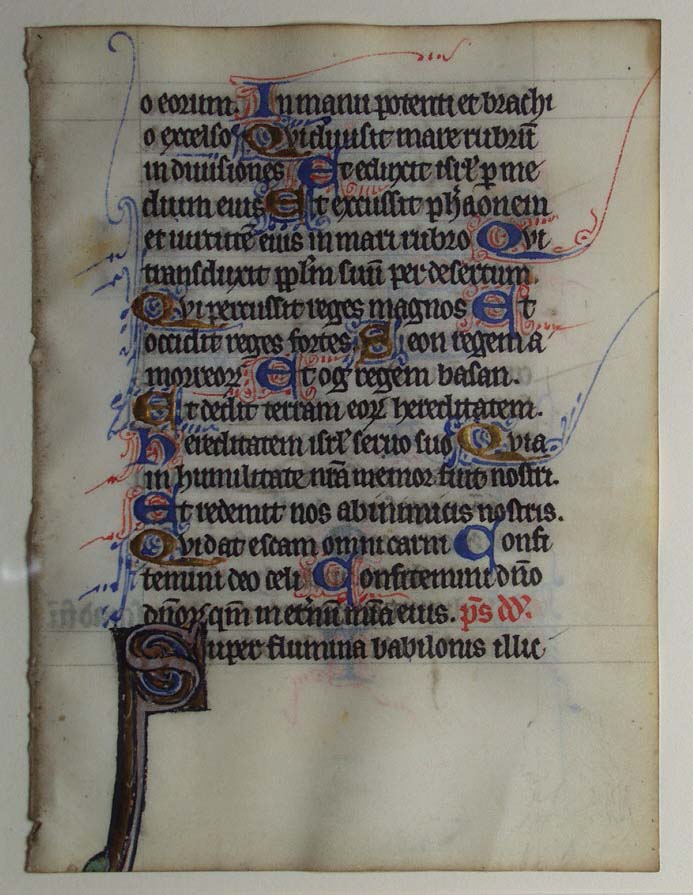 o eorum. In manu potenti et brachi
o excelso Qui diuisit mare rubrũ
in diuisiones Et eduxit isrl̃ ꝑ me
dium eius Et excussit pharonem
et uirtutẽ eius in mari rubro Qui
transduxit ppl̃m suũ per desertum.
Qui percussit reges magnos Et
occidit reges fortes. Seon regem a
morreoꝝ Et og regem basan.
Et dedit terram eoꝝ hereditatem.
Hereditatem isrl̃ seruo suo Quia
in humilitate nr̃a memor fuit nostri.
Et redemit nos ab inimicis nostris.
Qui dat escam omni carni Confi
temini deo celi Confitemini dño
dñoꝝ qm̃ in et̃nũ mĩa eius. p̃s dd̃.
Super flumina babilonis illic